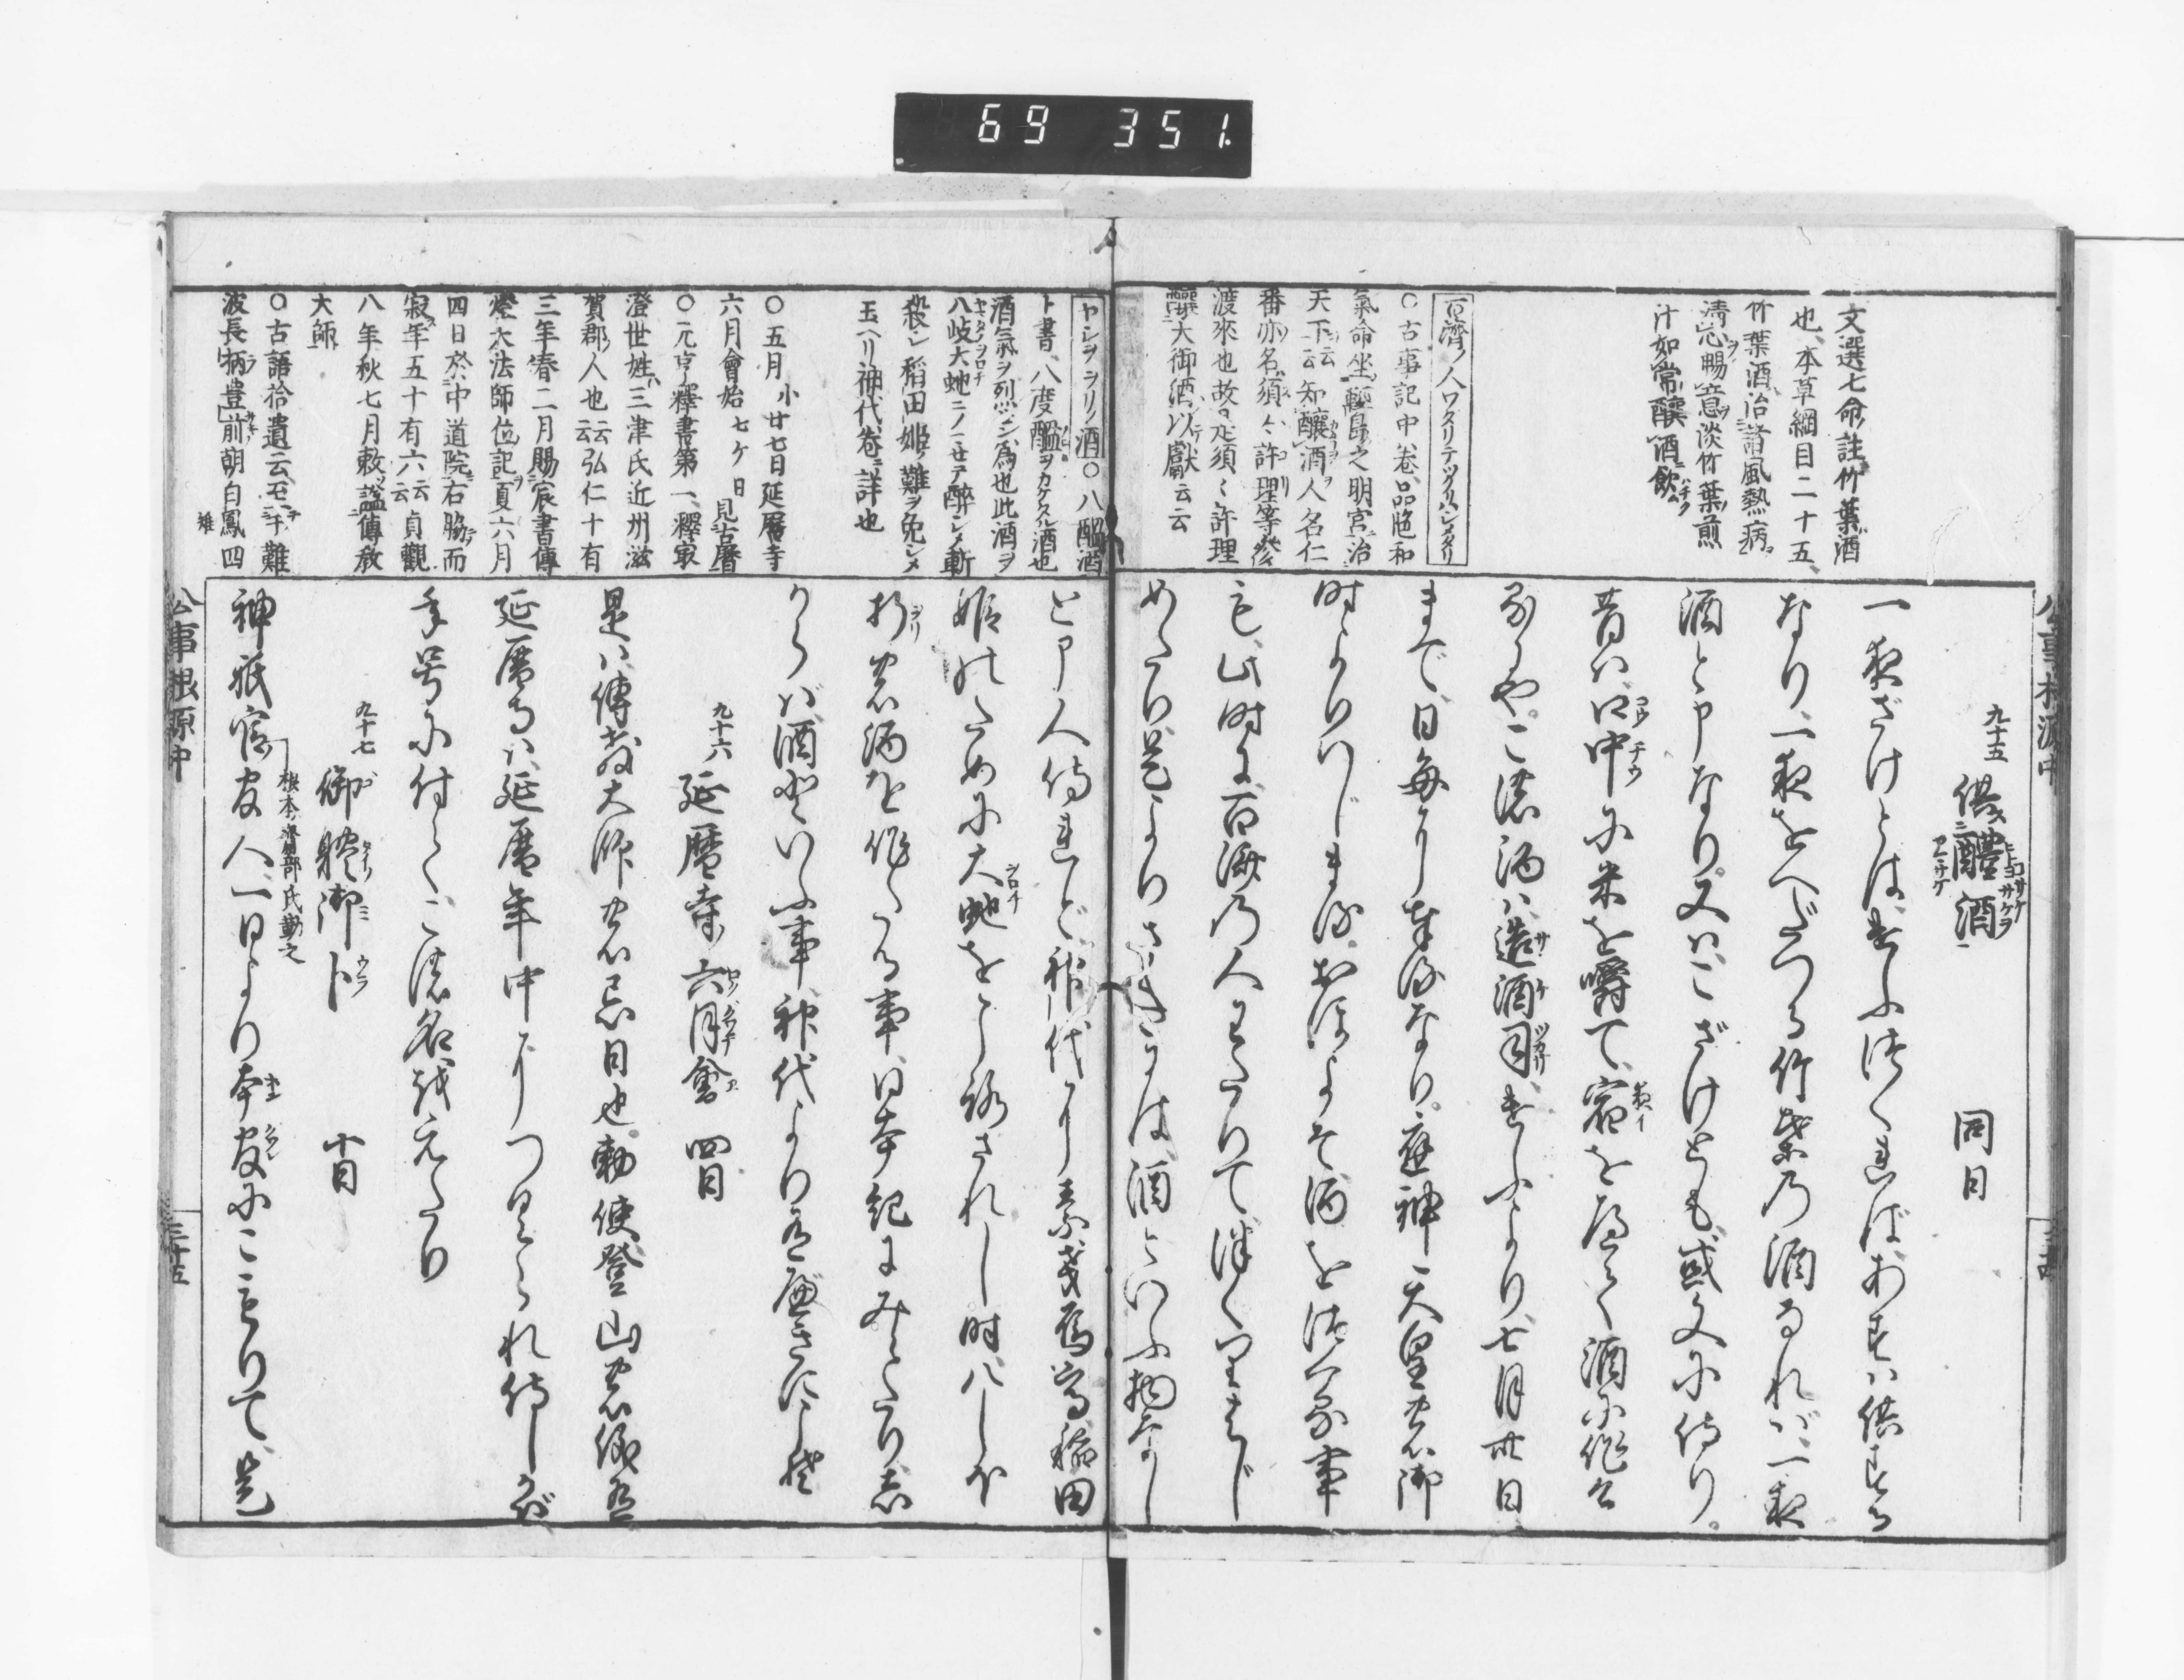 69 351
公事根源中
文選七命註竹葉酒
也、本草綱目二十五、
竹葉酒治諸風熱病
清心暢意淡竹葉煎
汁如常釀酒飲
百濟ノ人ワタリテツクリハシメタリ
○古事記中卷、品陀和
氣命坐輕島之明宮治
天下云云知釀酒人名仁
番亦名須々許理等參
渡來也故是須々許理
釀大御酒以獻云云
九十五 供醴酒 同日
一夜ざけとは、けふつくればあすは供する
なり、一夜をへだつる竹葉の酒なれば、一夜
酒と申なり。又はこざけとも、或文に侍り。
昔は口中に米を嚼て、
まで、日毎に奉るなり。應神天皇の御
時よりはじまる。おほよそ酒をつくる事
も、此時に百濟の人わたりて、つくりはじ
めたり。是よりさきには、酒といふ物なし
ヤシヲヲリノ酒○八醞酒
ト書、八度醞ヲカケタル酒也
酒氣ヲ烈シクシ爲也此酒ヲ
八岐大蛇ニノマセテ醉シメ斬
殺シ稻田姫ノ難ヲ免シメ
玉ヘリ神代卷ニ詳也
○五月小廿七日延曆寺
六月會始七ケ日見古曆
○元亨釋書第一、釋最
澄世姓三津氏近州滋
賀郡人也云云弘仁十有
三年春二月賜宸書傳
燈大法師位記夏六月
四日於中道院右脇而
寂年五十有六云云貞觀
八年秋七月敕諡傳教
大師
○古語拾遺云至于難
波長柄豊前朝白鳳四
と申人侍れど、神代に素戔烏尊稻田
姫のために大蛇をころされし時、八しほ
折の酒を作たる事、日本紀にみえたり。しか
らば、酒といふ事、神代より有べきにこそ
九十六 延曆寺六月會 四日
是は傳教大師の忌日也。勅使登山の儀有
延曆寺は、延曆年中につくられ侍しかば
年号に付て、この名を えたり
九十七 御體御卜 十日
根本齋部氏勤之
神祇官官人、一日より本官にこもりて、是
公事根源中
三十五